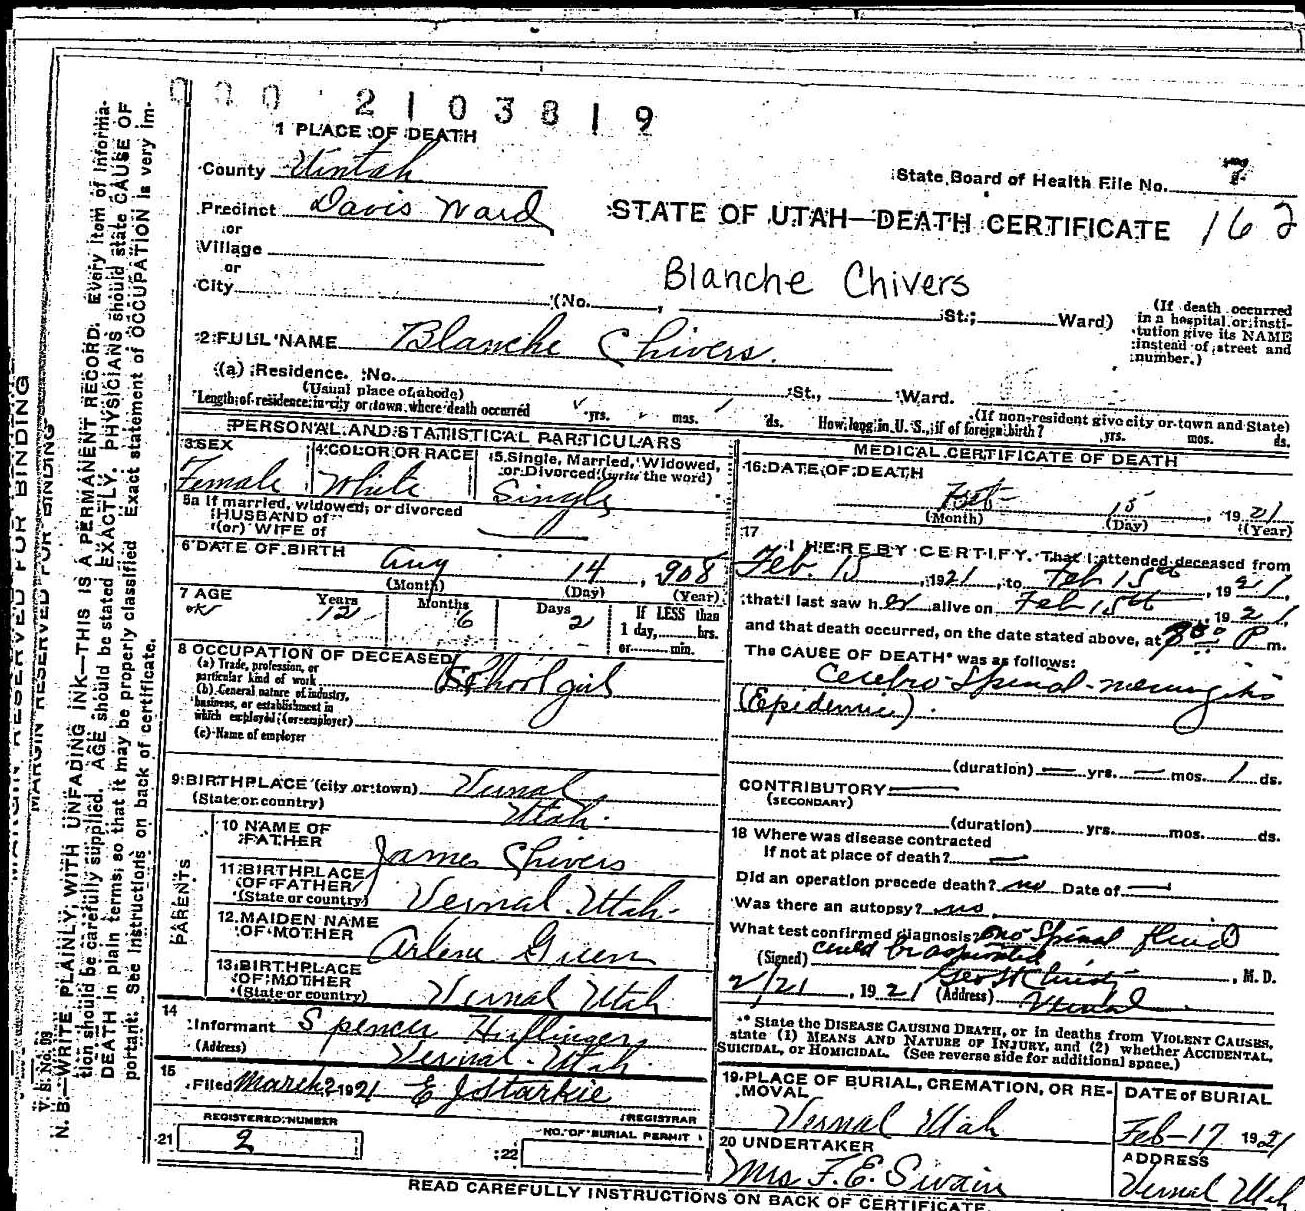 0 0 0 2 1 0 3 8 1 9
1 PLACE OF DEATH
County Uintah
State Board of Health File No. 7
Precinct Davis Ward
or
STATE OF UTAH—DEATH CERTIFICATE 162
Village
or
City
Blanche Chivers
(No. , St.; Ward)
(If death occurred in a hospital or insti-
tution give its NAME
instead of street and
number.)
2 FULL NAME Blanche Chivers.
(a) Residence. No. St., Ward.
(Usual place of abode)
(If non-resident give city or town and State)
Length of residence in city or town where death occurred yrs. mos. ds. How long in U. S., if of foreign birth? yrs. mos. ds.
PERSONAL AND STATISTICAL PARTICULARS
3 SEX
Female
4 COLOR OR RACE
White
5 Single, Married, Widowed,
or Divorced (write the word)
Single
5a If married, widowed, or divorced
HUSBAND of
(or) WIFE of
6 DATE OF BIRTH Aug 14, 908
(Month) (Day) (Year)
7 AGE Years Months Days If LESS than
ok 12 6 2 1 day, hrs.
or min.
8 OCCUPATION OF DECEASED
(a) Trade, profession, or
particular kind of work School girl
(b) General nature of industry,
business, or establishment in
which employed (or employer)
(c) Name of employer
9 BIRTHPLACE (city or town) Vernal
(State or country) Utah.
PARENTS
10 NAME OF
FATHER James Chivers
11 BIRTHPLACE
OF FATHER
(State or country) Vernal Utah
12 MAIDEN NAME
OF MOTHER Arlene Green
13 BIRTHPLACE
OF MOTHER
(State or country) Vernal Utah
14
Informant Spencer Hullinger
(Address) Vernal Utah.
15
Filed March 2 1921 E J Starkie
REGISTRAR
REGISTERED NUMBER
21 2
NO. OF BURIAL PERMIT
22
MEDICAL CERTIFICATE OF DEATH
16 DATE OF DEATH
Feb 15, 1921
(Month) (Day) (Year)
17
I HEREBY CERTIFY, That I attended deceased from
Feb. 15, 1921, to Feb 15th, 1921,
that I last saw her alive on Feb 15th, 1921,
and that death occurred, on the date stated above, at P m.
The CAUSE OF DEATH* was as follows:
Cerebro-Spinal-meningitis
(Epidemic).
(duration) — yrs. — mos. 1 ds.
CONTRIBUTORY —
(SECONDARY)
(duration) yrs. mos. ds.
18 Where was disease contracted
If not at place of death? —
Did an operation precede death? no Date of —
Was there an autopsy? no
What test confirmed diagnosis? no Spinal fluid
could be aspirated
(Signed) Geo H Christy, M. D.
2/21, 1921 (Address) Vernal
* State the DISEASE CAUSING DEATH, or in deaths from VIOLENT CAUSES,
state (1) MEANS AND NATURE OF INJURY, and (2) whether ACCIDENTAL,
SUICIDAL, or HOMICIDAL. (See reverse side for additional space.)
19 PLACE OF BURIAL, CREMATION, OR RE-
MOVAL
Vernal Utah
DATE of BURIAL
Feb-17 1921
20 UNDERTAKER
Mrs F. E. Swain
ADDRESS
Vernal Utah
READ CAREFULLY INSTRUCTIONS ON BACK OF CERTIFICATE.
MARGIN RESERVED FOR BINDING
MARGIN RESERVED FOR BINDING
V. S. No. 99
N. B.—WRITE PLAINLY, WITH UNFADING INK—THIS IS A PERMANENT RECORD. Every item of informa-
tion should be carefully supplied. AGE should be stated EXACTLY. PHYSICIANS should state CAUSE OF
DEATH in plain terms, so that it may be properly classified. Exact statement of OCCUPATION is very im-
portant. See instructions on back of certificate.